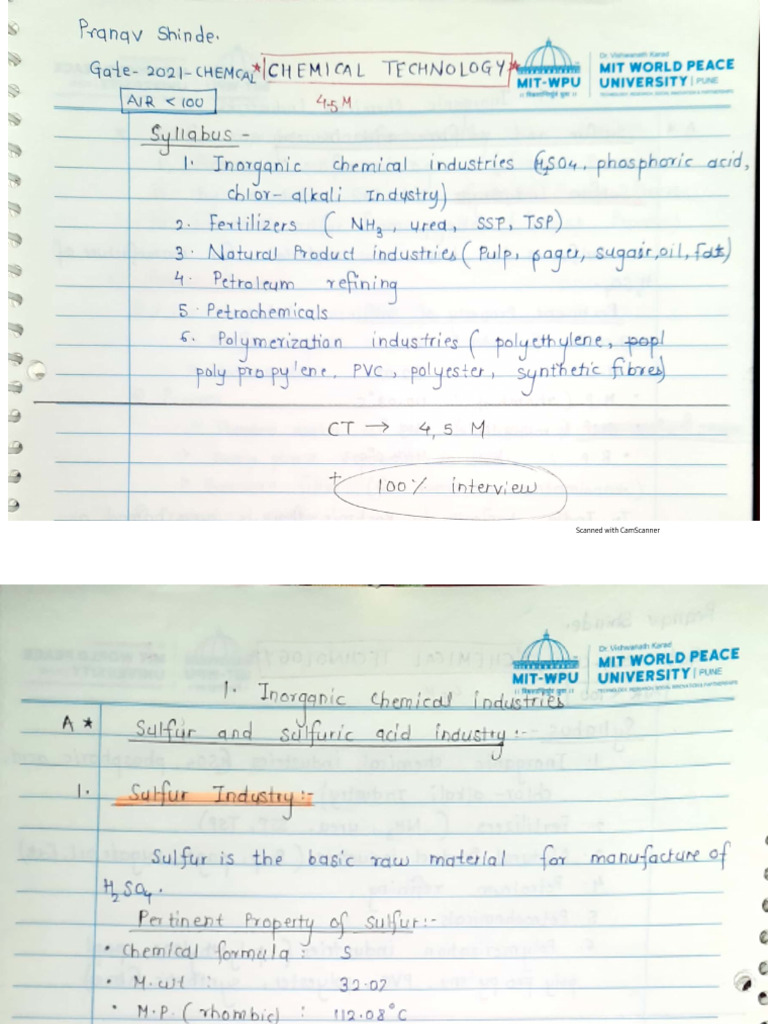 Pranav Shinde.
Gate-2021-CHEMCAL *CHEMICAL TECHNOLOGY*
AIR < 100
4-5 M
Dr. Vishwanath Karad
MIT WORLD PEACE
UNIVERSITY | PUNE
TECHNOLOGY, RESEARCH, SOCIAL INNOVATION & PARTNERSHIPS
MIT-WPU
Syllabus -
1. Inorganic chemical industries (H2SO4, phosphoric acid,
chlor-alkali Industry)
2. Fertilizers ( NH3, urea, SSP, TSP)
3. Natural Product industries ( Pulp, paper, sugar, oil, fats)
4. Petroleum refining
5. Petrochemicals
6. Polymerization industries ( polyethylene, popl
polypropylene, PVC, polyester, synthetic fibres)
CT → 4,5 M
+
100% interview
Scanned with CamScanner
Dr. Vishwanath Karad
MIT WORLD PEACE
UNIVERSITY | PUNE
TECHNOLOGY, RESEARCH, SOCIAL INNOVATION & PARTNERSHIPS
MIT-WPU
1. Inorganic Chemical industries
A* Sulfur and sulfuric acid industry :-
1. Sulfur Industry:-
Sulfur is the basic raw material for manufacture of
H2SO4.
Pertinent Property of Sulfur:-
• Chemical formula : S
• M.wt : 32.07
• M.P. ( rhombic) : 112.08°C